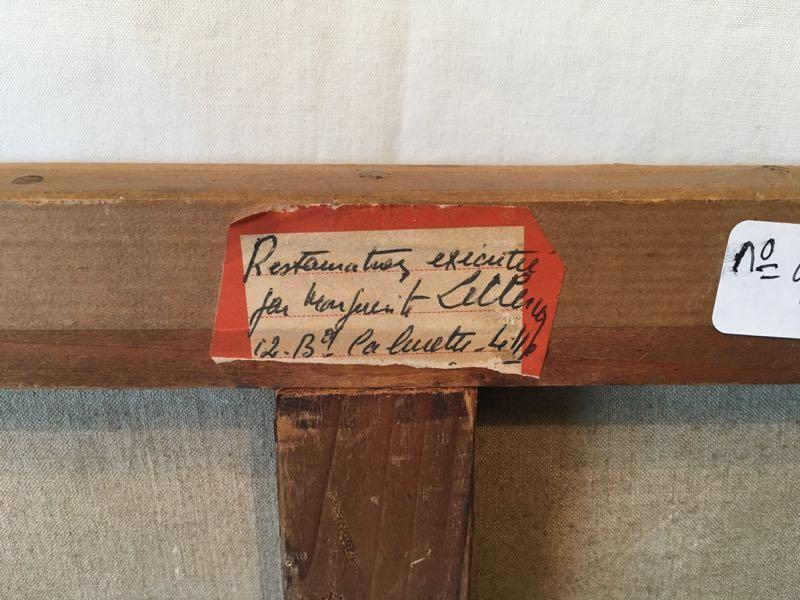 Restauration exécutée
par Marguerite
12. Bd Calmette - Lille
No